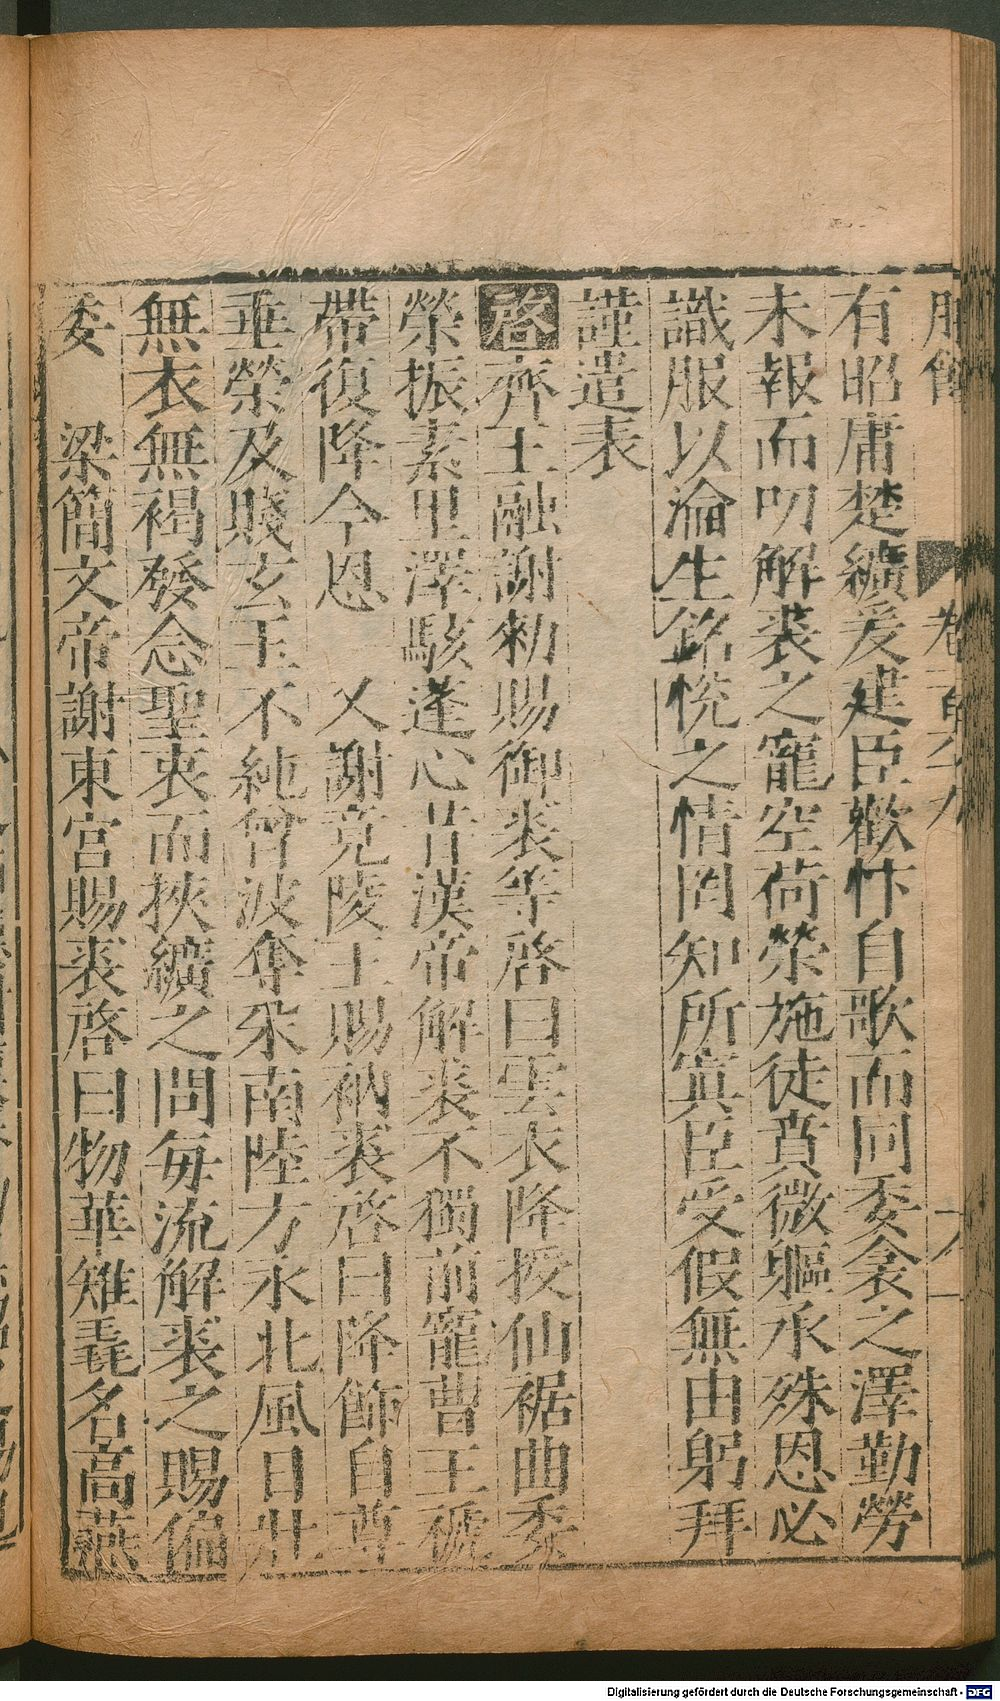 服飾 卷二百六十九 十八
有昭庸楚纊爰建臣歡忭自歌而同委衾之澤勤勞
未報而叨解裘之寵空荷榮施徒賁微軀承殊恩必
識服以淪生銘悅之情罔知所寘臣受假無由躬拜
謹遣表
啓齊王融謝勑賜御裘等啓曰雲衣降授仙裾曲委
榮振素里澤駭蓬心昔漢帝解裘不獨前寵曹王褫
帶復降今恩 又謝竟陵王賜衲裘啓曰降飾自尊
垂榮及賤玄玉不純曾波奪采南陸方永北風日壯
無衣無褐發念聖衷而挾纊之問每流解裘之賜偏
委 梁簡文帝謝東宮賜裘啓曰物華雉毳名高燕
Digitalisierung gefördert durch die Deutsche Forschungsgemeinschaft - DFG